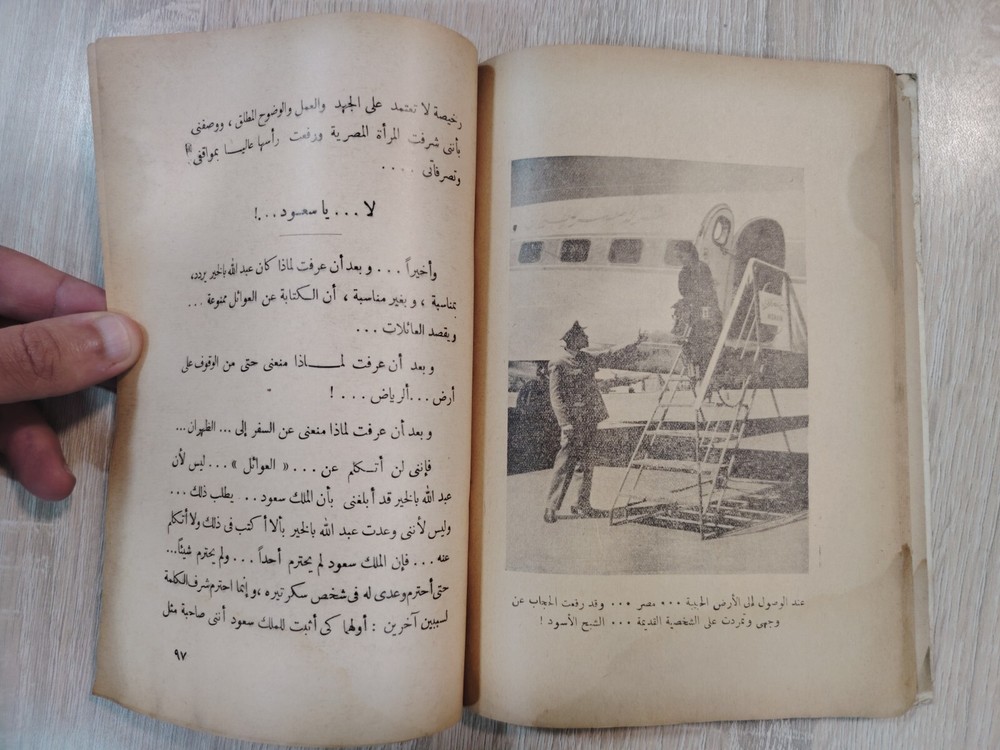 رخيصة لا تعتمد على الجهد والعمل والوضوح المطلق ، ووصفنى
بأننى شرفت المرأة المصرية ورفعت رأسها عاليا بمواقفى
وتصرفاتى ....
لا ... يا سعود ...!
وأخيراً ... وبعد أن عرفت لماذا كان عبد الله بالخير يردد،
بمناسبة ، وبغير مناسبة ، أن الكتابة عن العوائل ممنوعة ...
ويقصد العائلات ...
وبعد أن عرفت لماذا منعنى حتى من الوقوف على
أرض ... الرياض ... !
وبعد أن عرفت لماذا منعنى عن السفر إلى ... الظهران ...
فإننى لن أتكلم عن ... « العوائل » ... ليس لأن
عبد الله بالخير قد أبلغنى بأن الملك سعود .. يطلب ذلك ...
وليس لأننى وعدت عبد الله بالخير بألا أكتب فى ذلك ولا أتكلم
عنه ... فإن الملك سعود لم يحترم أحداً ... ولم يحترم شيئاً ...
حتى أحترم وعدى له فى شخص سكرتيره ، وإنما احترم شرف الكلمة
لسببين آخرين : أولهما كى أثبت للملك سعود أننى صاحبة مثل
٩٧
عند الوصول إلى الأرض الحبيبة ... مصر ... وقد رفعت الحجاب عن
وجهى وتمردت على الشخصية القديمة ... الشبح الأسود !